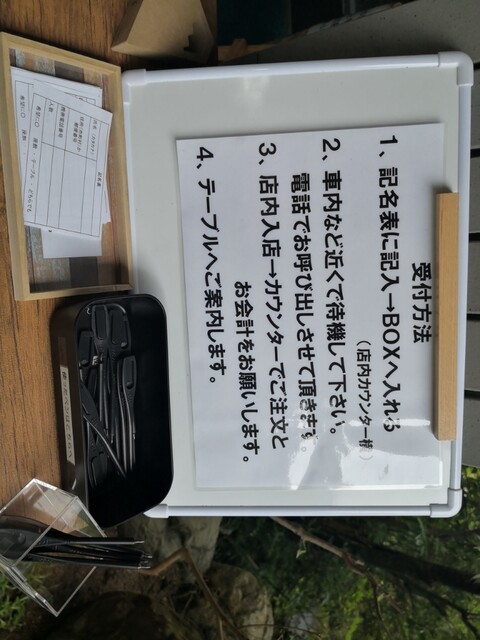 受付方法
1、記名表に記入→BOXへ入れる
（店内カウンター横）
2、車内など近くで待機して下さい。
電話でお呼び出しさせて頂きます。
3、店内入店→カウンターでご注文と
お会計をお願いします。
4、テーブルへご案内します。
記名表
人数
携帯電話番号